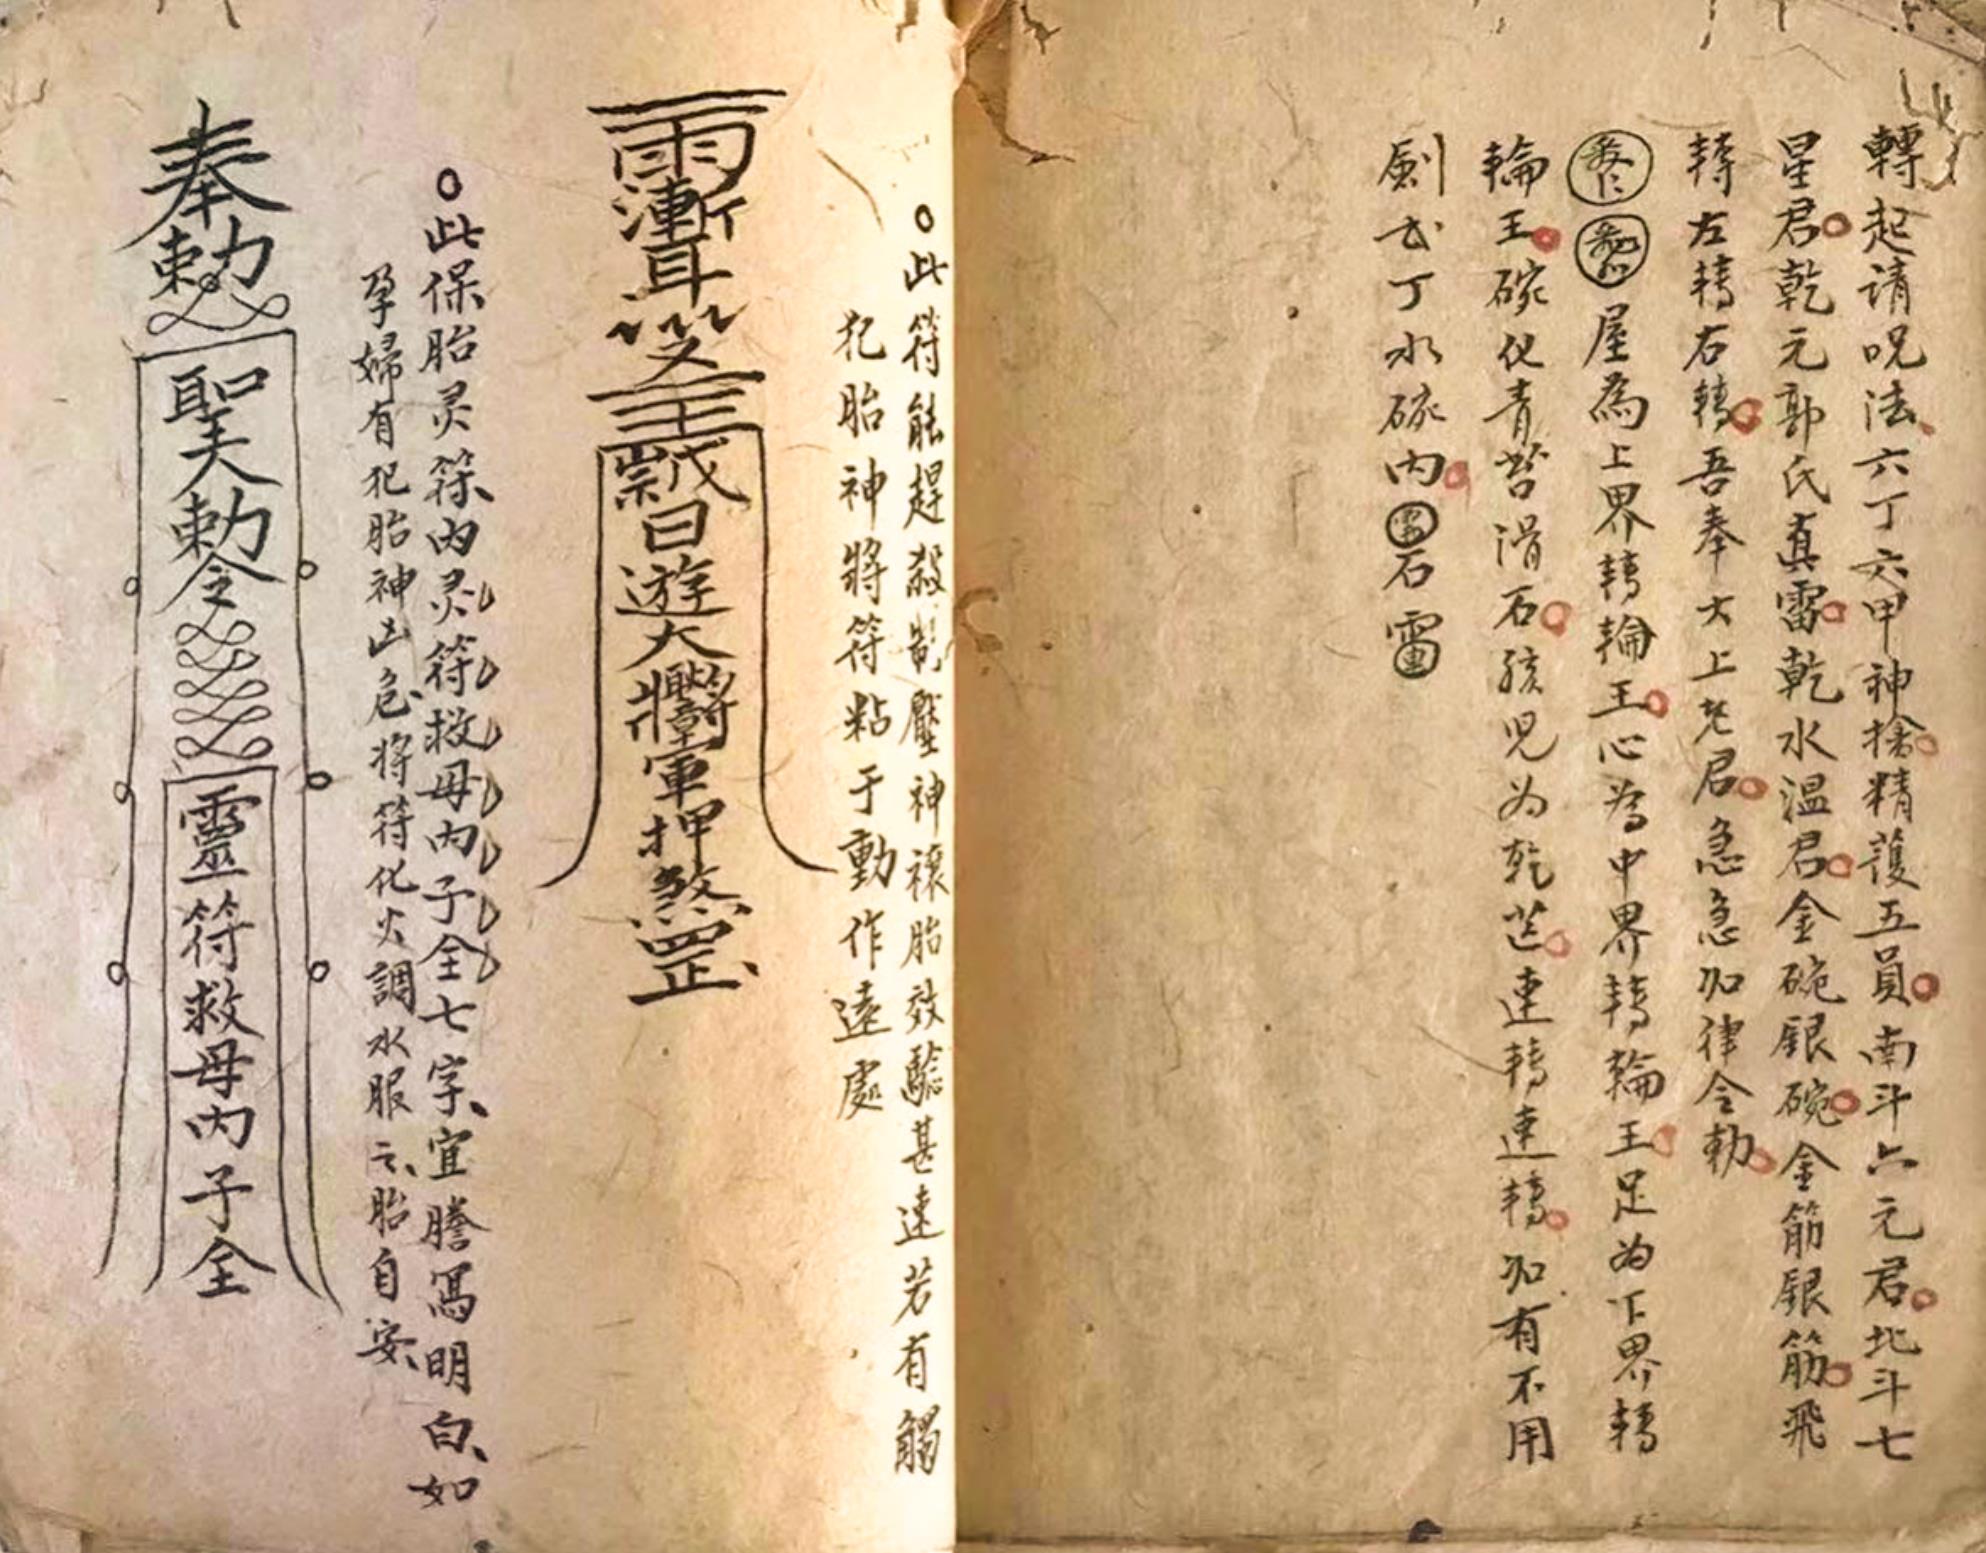 轉起請呪法六丁六甲神搶精護五員南斗六元君北斗七
星君乾元郭氏真雷乾水溫君金碗銀碗金筋銀筋飛
轉左轉右轉吾奉太上老君急急如律令勅
屋為上界轉輪王心為中界轉輪王足為下界轉
輪王碗化青苔滑石孩兒為乾连轉速轉如有不用
劍丁水碗內石雷
此符能趕殺制壓神禳胎效驗甚速若有觸
犯胎神將符粘于動作遠處
雨漸耳
日遊大將軍押煞罡
此保胎灵符內灵符救母內子全七字宜謄寫明白如
孕婦有犯胎神凶危將符化火調水服之胎自安
奉勅
聖天勅令
靈符救母內子全